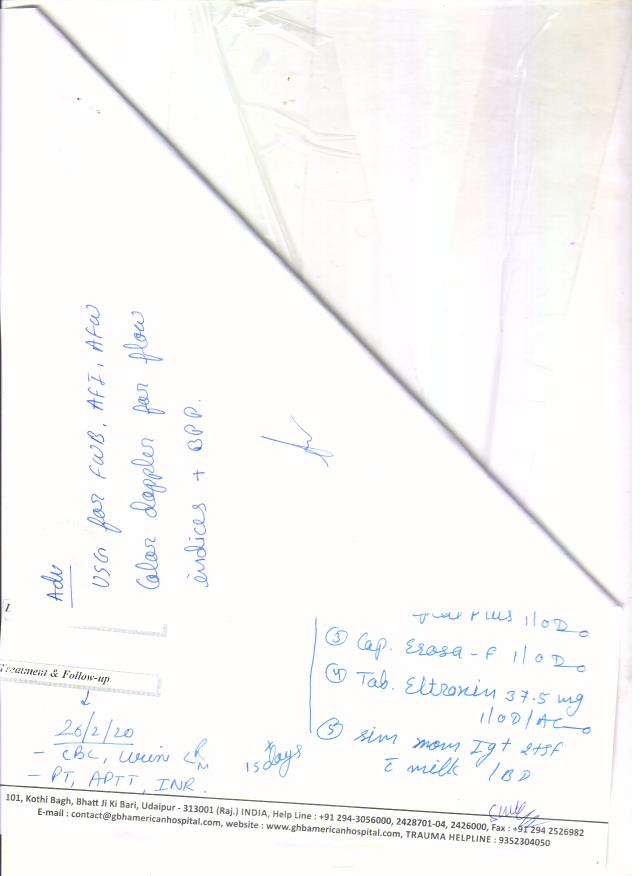 Adv
USG for FWB, AFI, AFW
Color doppler for flow
indices + BPP.
Treatment & Follow-up
26/2/20
- CBC, Urin
- PT, APTT, INR.
15 days
Plus 1 OD
③ Cap. F 1 OD
④ Tab. Eltroxin 37.5 mg
1 OD/AC
⑤ sim mom Igt 2tsf
c̄ milk /BD
101, Kothi Bagh, Bhatt Ji Ki Bari, Udaipur - 313001 (Raj.) INDIA, Help Line : +91 294-3056000, 2428701-04, 2426000, Fax : +91 294 2526982
E-mail : contact@gbhamericanhospital.com, website : www.ghbamericanhospital.com, TRAUMA HELPLINE : 9352304050